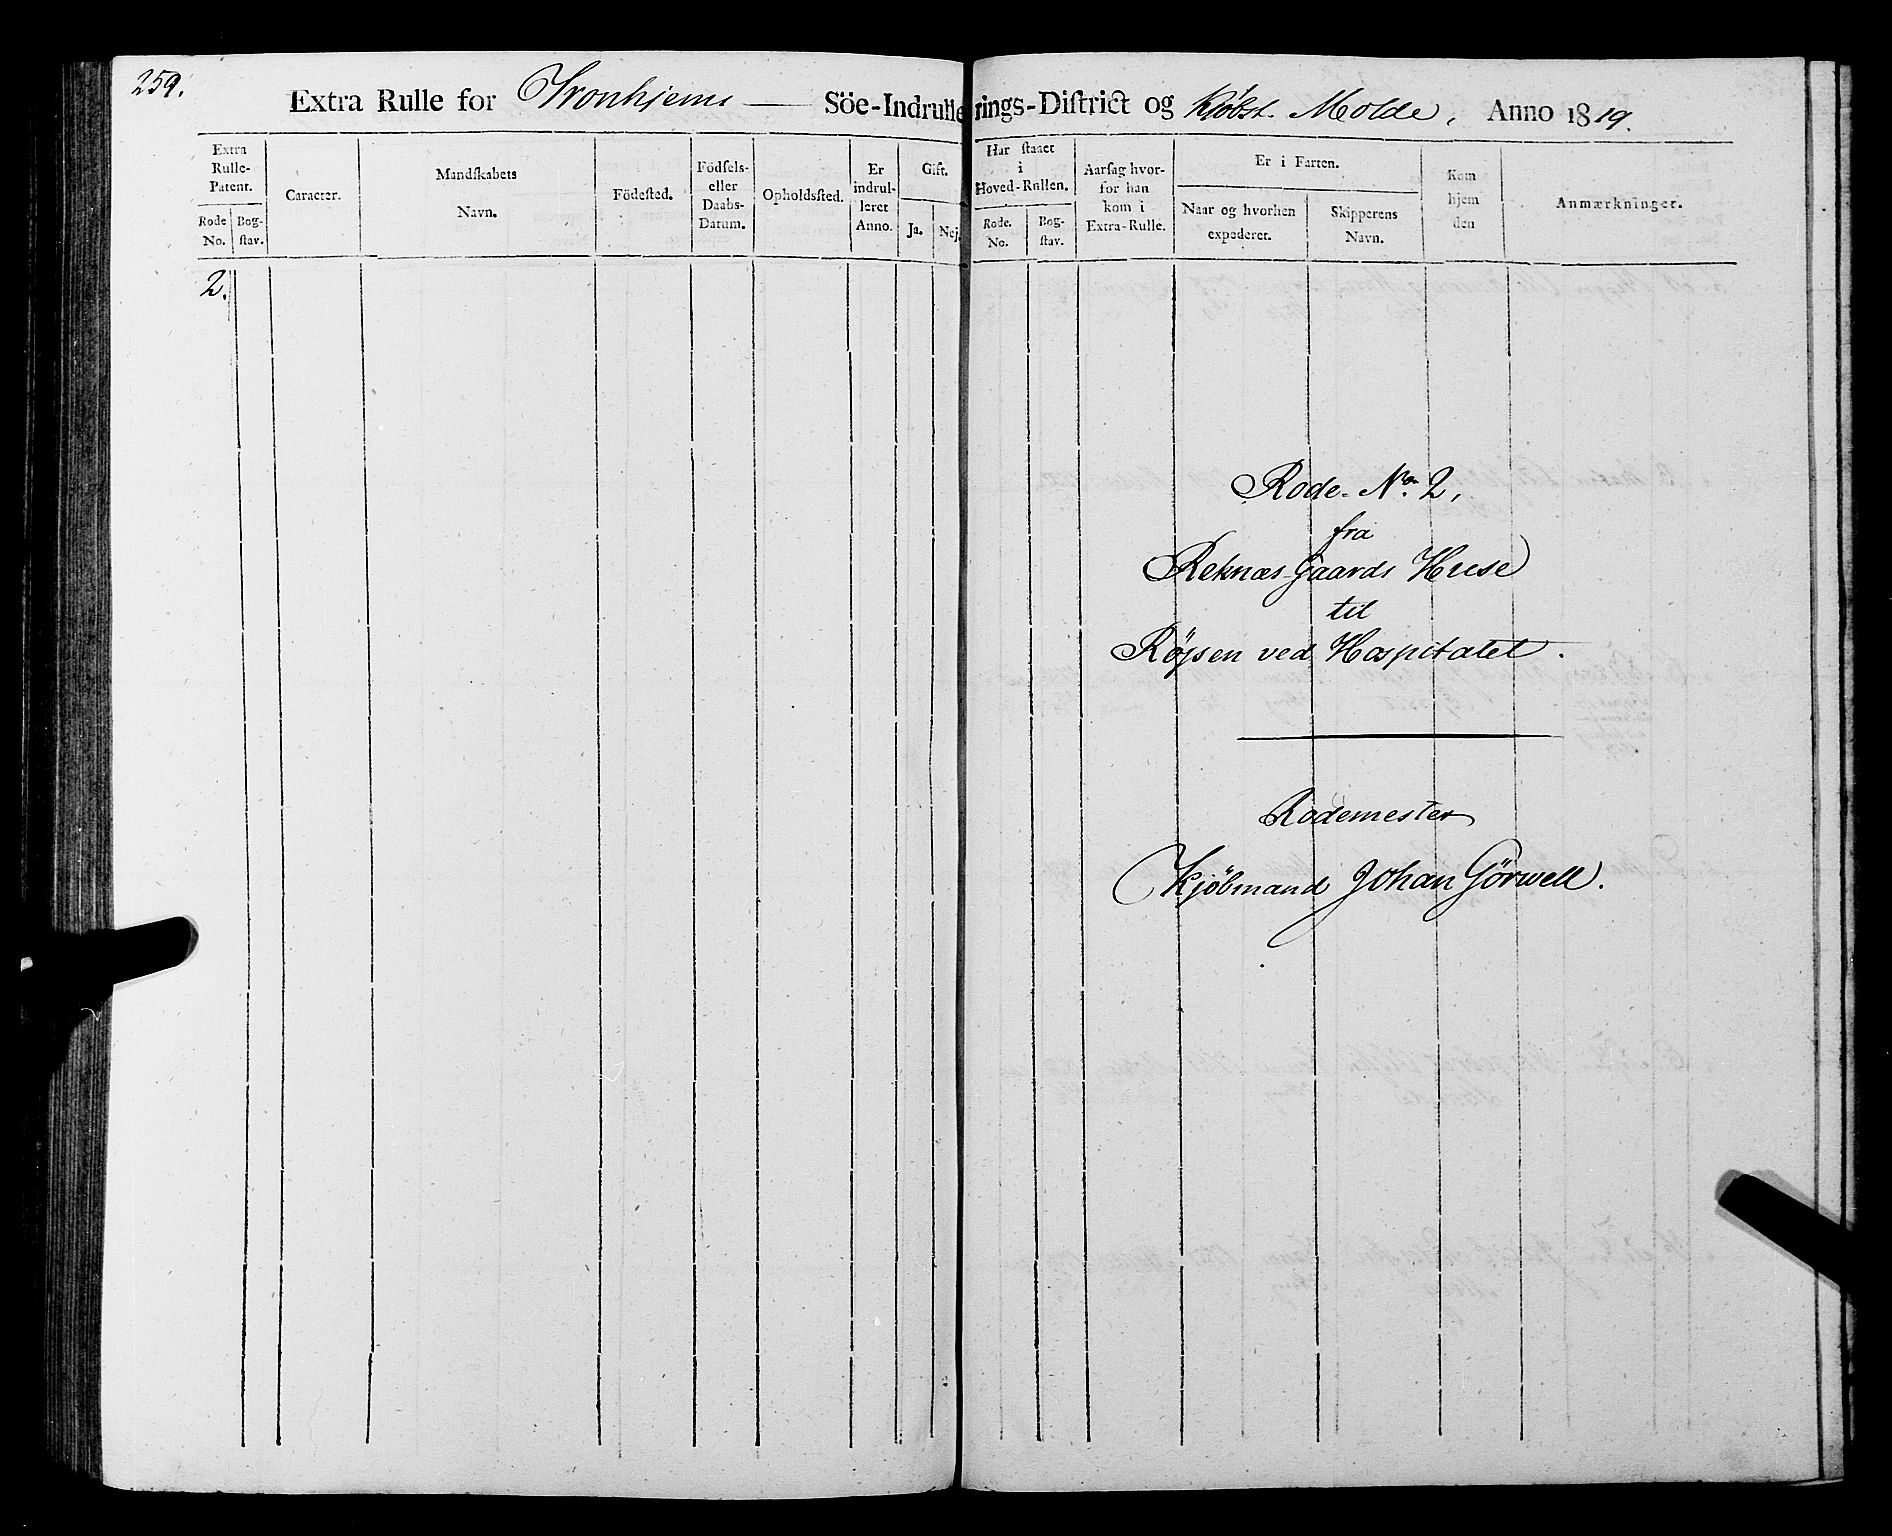 259.
Extra Rulle for Tronhjems — Söe-Indrullerings-District og Kjøbst. Molde, Anno 1819.
Extra Rulle-Patent.
Rode No.
Bog-stav.
Caracter.
Mandskabets Navn.
Födested.
Födsels- eller Daabs-Datum.
Opholdssted.
Er indrulleret Anno.
Gift.
Ja.
Nej.
Har staaet i Hoved-Rullen.
Rode. No.
Bog-stav.
Aarsag hvorfor han kom i Extra-Rulle.
Er i Farten.
Naar og hvorhen expederet.
Skipperens Navn.
Kom hjem den
Anmærkninger.
2.
Rode No. 2,
fra
Reknæs Gaards Huse
til
Røjsen ved Hospitalet.
Rodemester
Kjøbmand Johan Görwell.